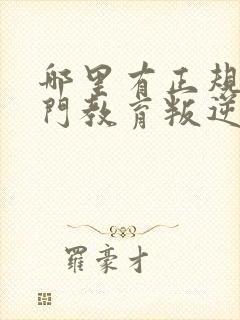 哪里有正規
門教育叛逆
羅豪才